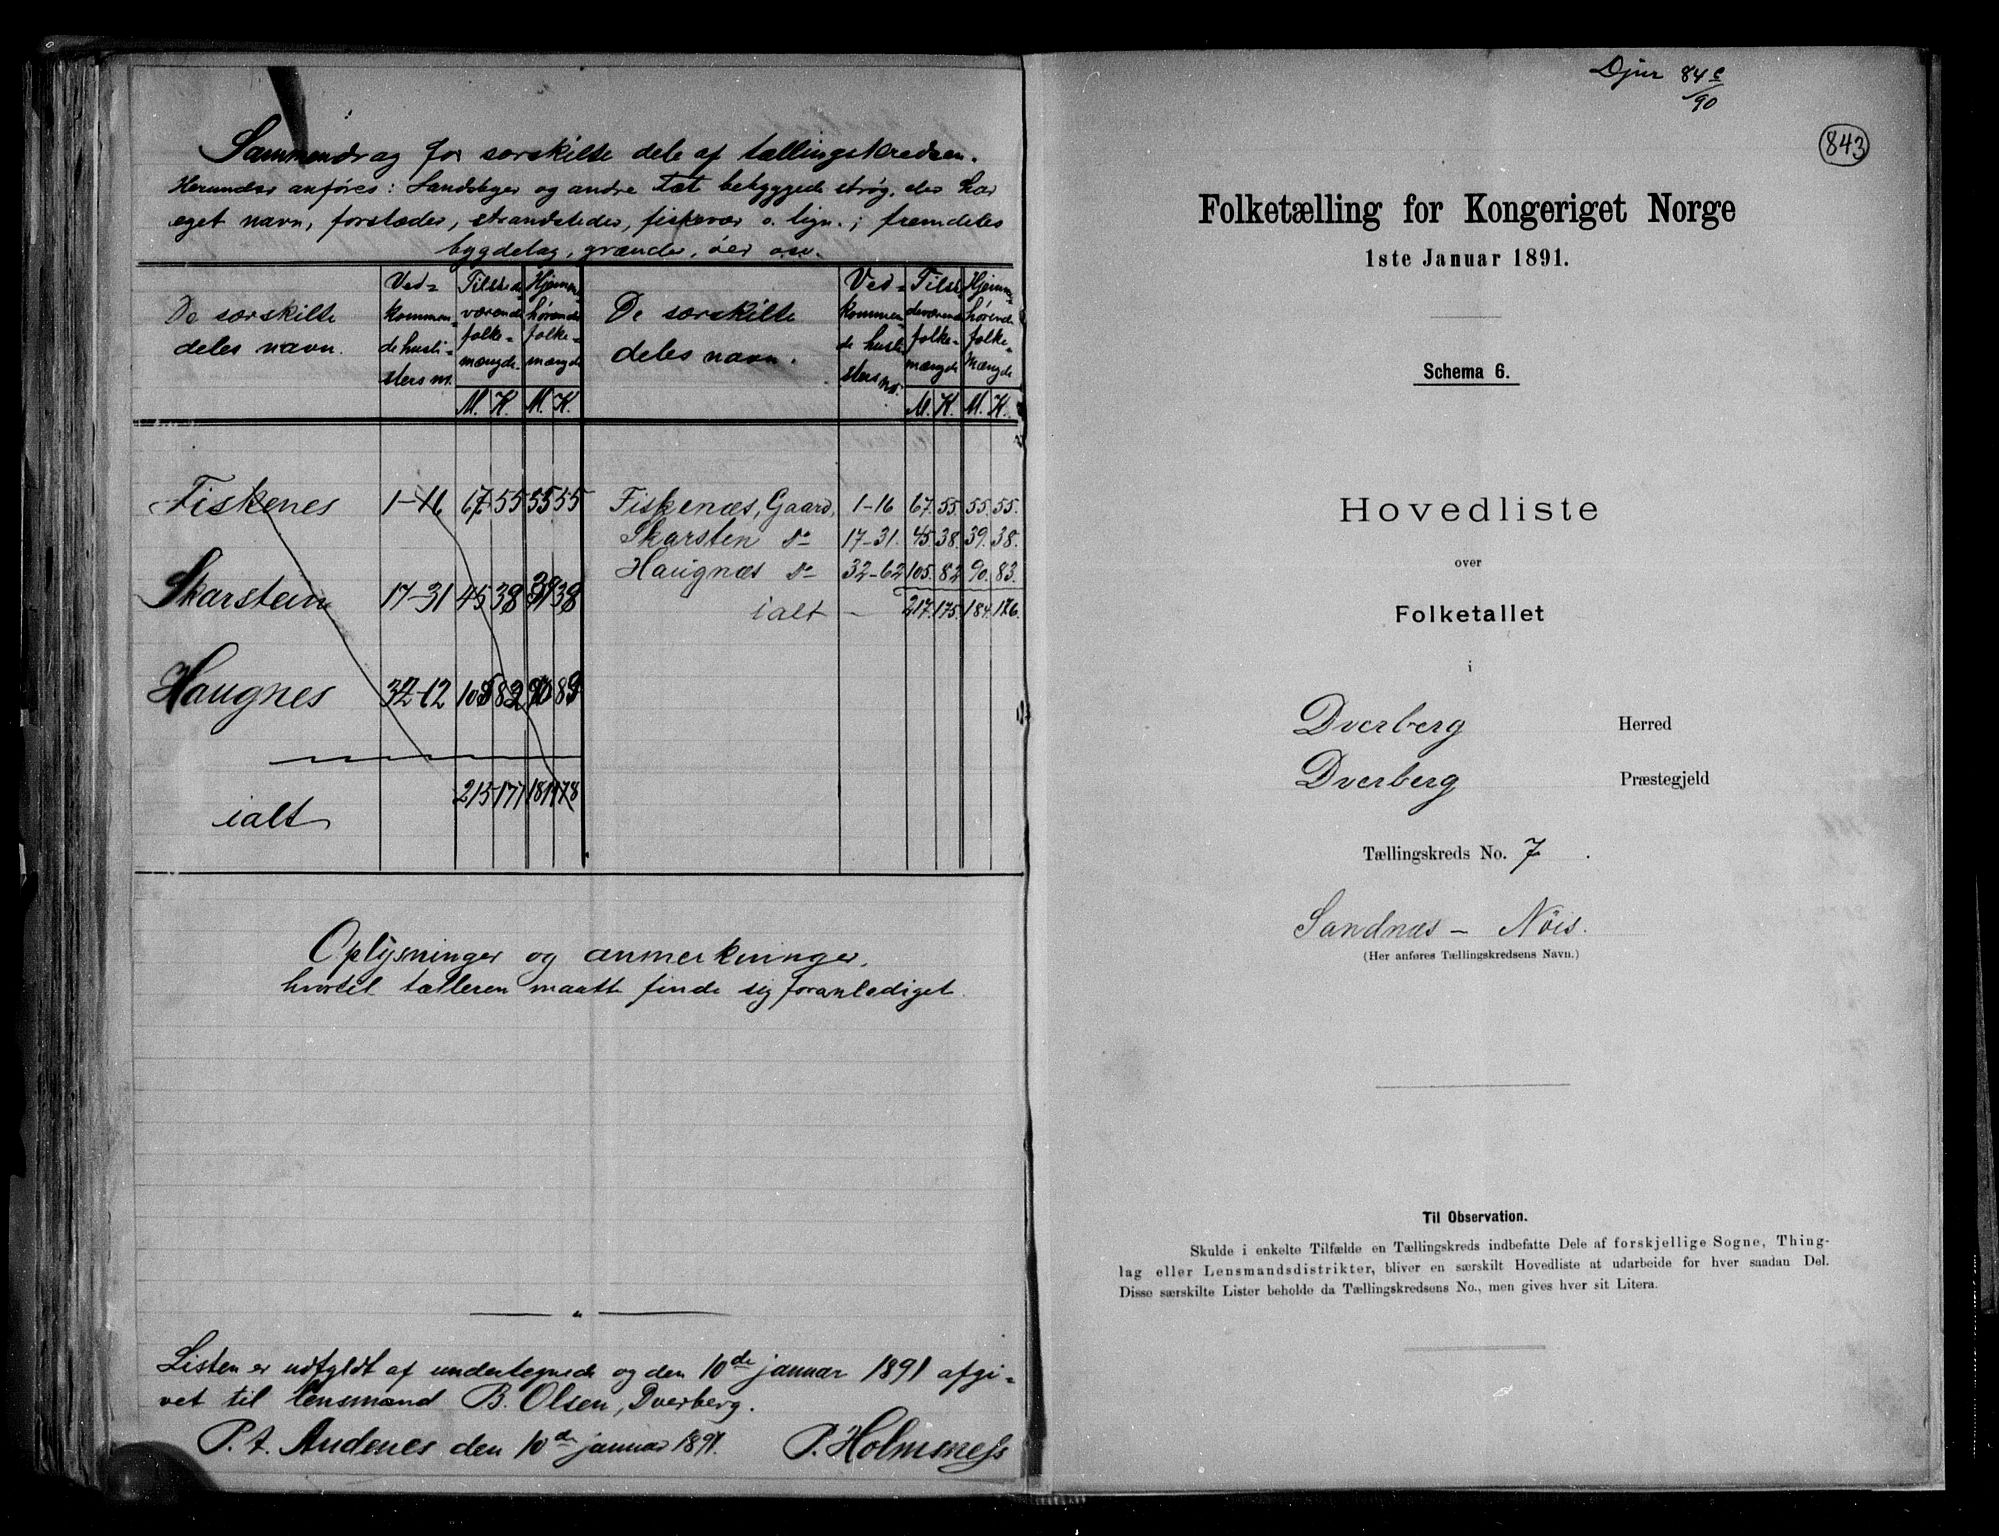 Sammendrag for særskilte dele af tællingskredsen.
Herunder anføres: Landsbyer og andre tæt bebyggede strøg, der har
eget navn, forstæder, strandsteder, fiskevær o. lign.; fremdeles
bygdelag, grænder, øer osv.
De særskilte deles navn.
Ved-kommen-de husli-sters nr.
Tilstedeværende folke-mængde.
Hjemme-hørende folke-mængde
De særskilte deles navn.
Ved-kommen-de husli-sters nr.
Tilste-deværende folke-mængde
Hjemme-hørende folke-mængde
M. K. M. K. M. K. M. K.
Fiskenes 1-16 67 55 55 55
Skarstein 17-31 45 38 39 38
Haugnes 32-12 105 82 90 83
ialt 215 177 181 178
Fiskenæs, Gaard, 1-16 67. 55. 55. 55.
Skarsten do 17-31. 45. 38. 39. 38.
Haugnæs do 32-62 105. 82 90. 83.
ialt - 217. 175. 184. 176.
Oplysninger og anmerkninger,
hvortil tælleren maatte finde sig foranlediget.
Listen er udfyldt af undertegnede og den 10de januar 1891 afgi-
vet til lensmand B. Olsen, Dverberg.
P. t. Andenes den 10de januar 1891. P. Holmsness
Djur 84 c/90
843
Folketælling for Kongeriget Norge
1ste Januar 1891.
Schema 6.
Hovedliste
over
Folketallet
i
Dverberg Herred
Dverberg Præstegjeld
Tællingskreds No. 7.
Sandnæs - Nöis.
(Her anføres Tællingskredsens Navn.)
Til Observation.
Skulde i enkelte Tilfælde en Tællingskreds indbefatte Dele af forskjellige Sogne, Thing-
lag eller Lensmandsdistrikter, bliver en særskilt Hovedliste at udarbeide for hver saadan Del.
Disse særskilte Lister beholde da Tællingskredsens No., men gives hver sit Litera.